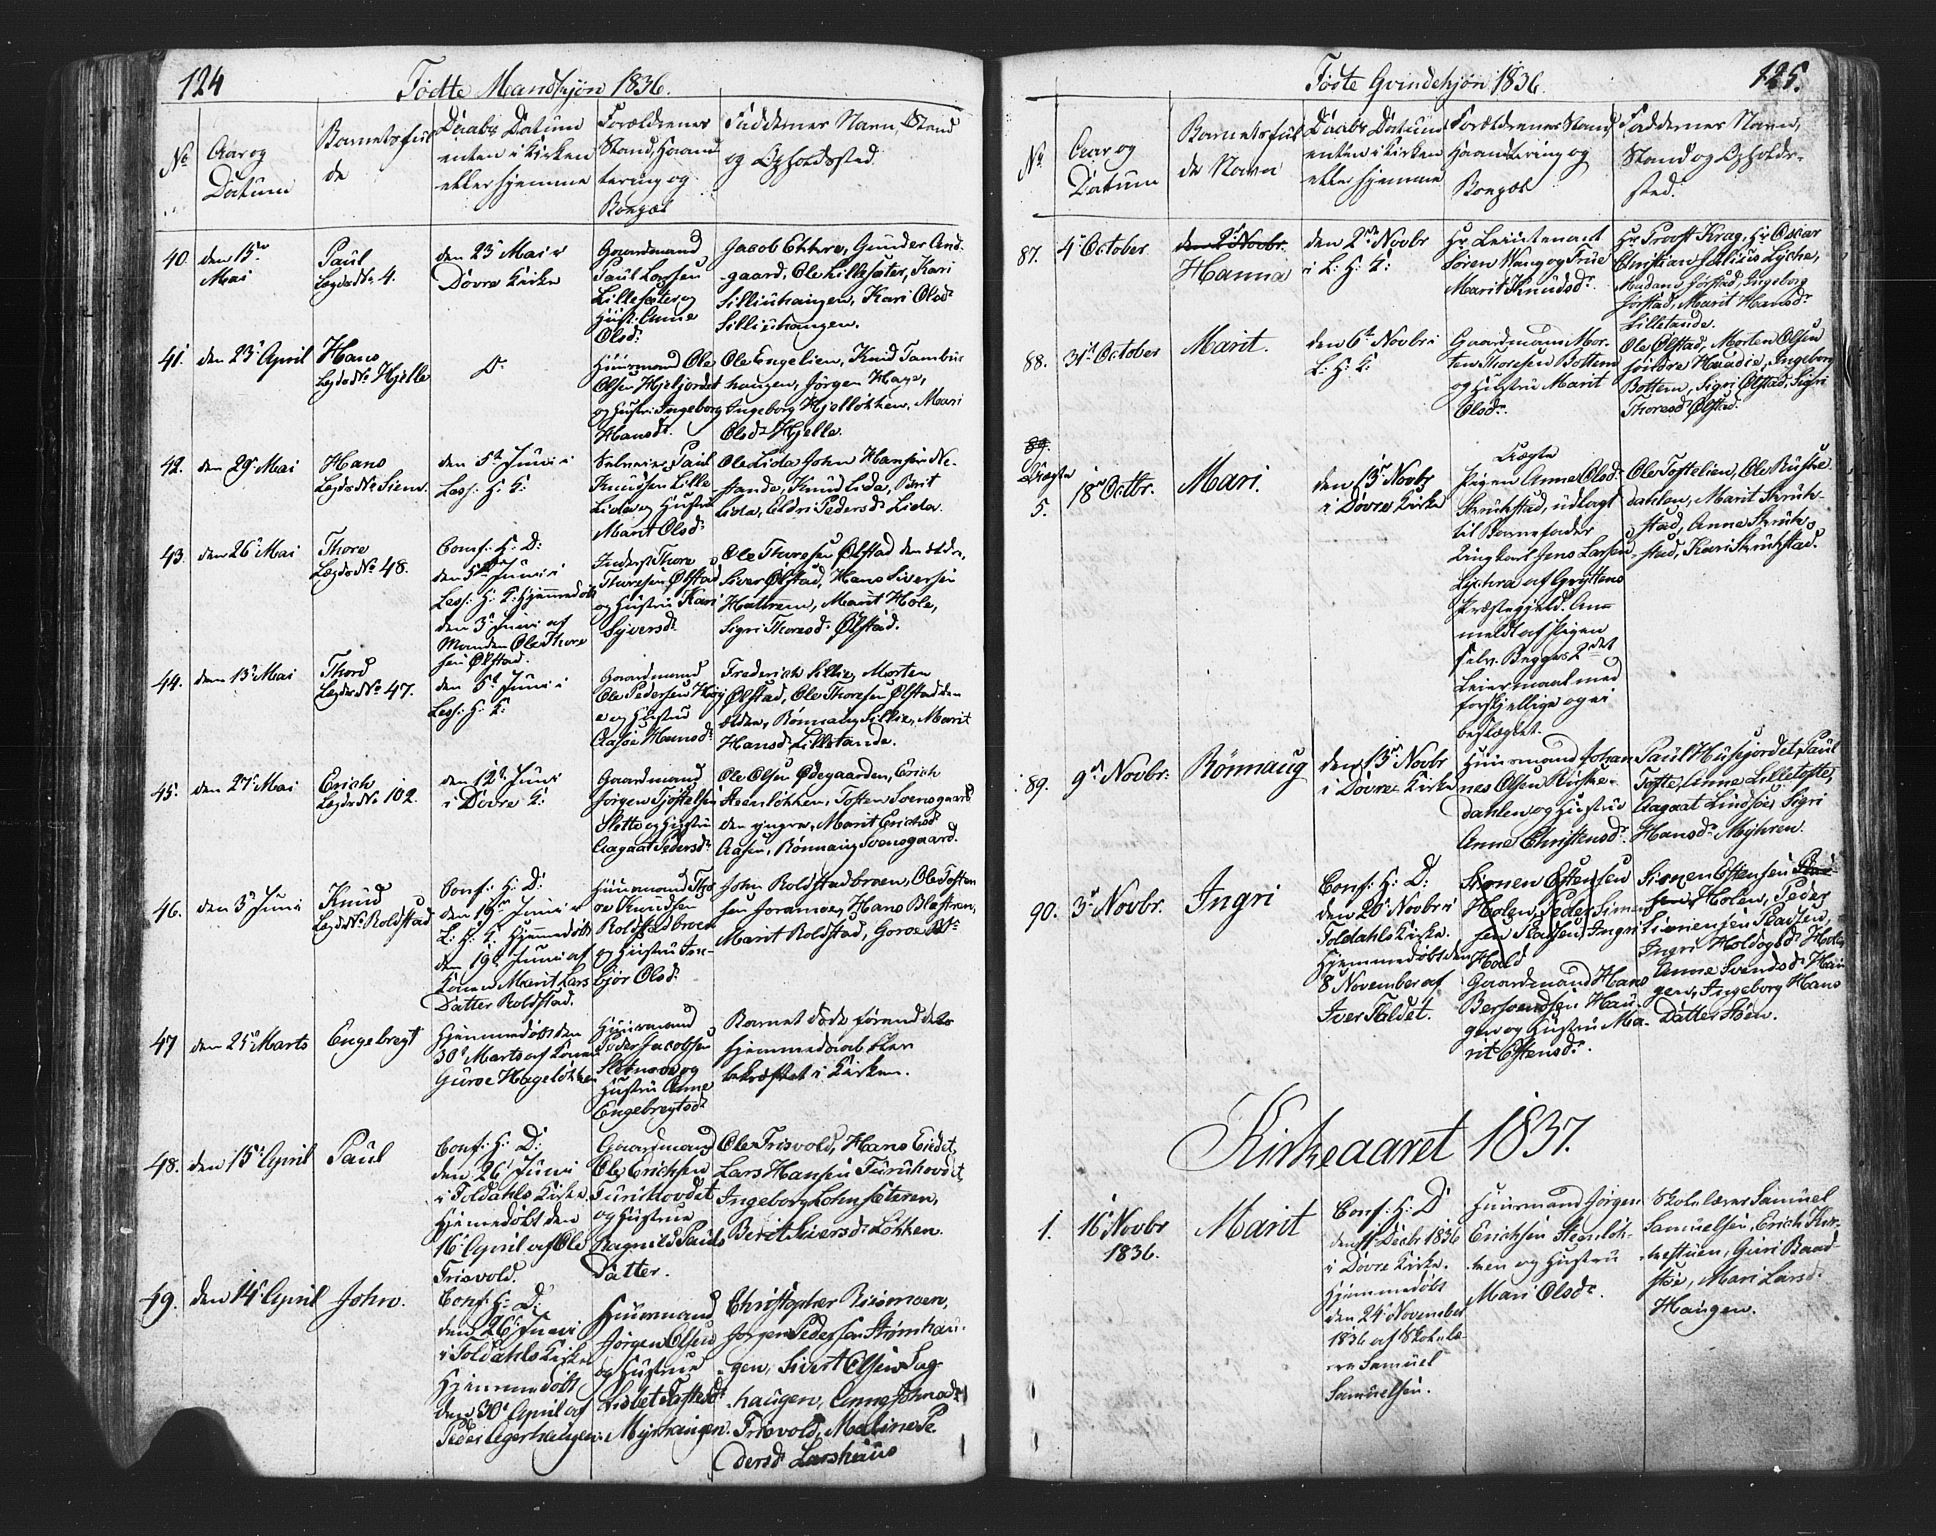 124
Födte Mandkjön 1836.
No
Aar og
Datum
Barnets ful
de
Daabs Datum
enten i Kirken
eller hjemme
Forældrenes
Stand, Haand
tering og
Bopæl
Faddernes Navn, Stand
og Opholdssted.
40
den 15de
Mai
Paul
Lægds No 4.
den 23 Mai i
Dovre Kirke
Gaardmand
Paul Larsen
Lillesæter og
Hust: Anne
Olsdr
Jacob Ekkre, Gunder And-
gaard, Ole Lillesæter, Kari
Killiuhaugen, Kari Olsdr
Killiuhaugen.
41.
den 23 April
Hans
Lægds No Hjelle
Do
Huusmand Ole
Olsen Hjeljordet
og Hustru Ingeborg
Hansdr
Ole Engelien, Knud Jambu-
haugen, Jörgen Hage,
Ingeborg Hjellökken, Mari
Olsdr Hjelle.
42.
den 29 Mai
Hans
Lægds No Siem.
den 5te Juni i
Less: H: K:
Paul
Knudsen Lille
Lida og Hustru
Marit Olsdr
Ole Lida, John Hansen Ne-
stande, Knud Lida, Brit
Lida, Eldri Pedersdr Lida.
43.
den 26 Mai
Thore
Lægds No 48.
Conf: H: D:
den 5te Juni i
Less: H: K: Hjemmedöbt
den 3 Juni af
Manden Ole Thore
sen Ölstad.
Thore
Thoresen Ölstad
og Hustru Kari
Syversdr
Ole Thoresen Ölstad den ældre,
Siver Ölstad, Hans Siversen
Marit Hole,
Sigri Thoresdr Ölstad.
44.
den 13 Mai
Thord
Lægds No 47.
den 5te Juni i
Less: H: K:
Gaardmand
Ole Pedersen
og Hustru
Aasöe Hansdr
Frederich Killie, Morten
Ölstad, Ole Thoresen Ölstad den
ældre, Rönnaug Killie, Marit
Hansdr Lillestande.
45.
den 27 Mai
Erich
Lægds No 102.
den 12te Juni
i Dovre K:
Gaardmand
Jörgen Tjöstelsen
Slette og Hustru
Aagaat Pedersdr
Ole Olsen Ödegaarden, Erich
Steenlökken, Tosten Svensgaard
den yngre, Marit Erichsdr
Aasen, Rönnaug Svensgaard.
46.
den 5 Juni
Knud
Lægds No Roldstad
Conf: H: D:
den 19de Juni i
L: H: K: Hjemmedöbt
den 19de Juni af
Konen Marit Lars
Datter Roldstad.
Huusmand Tho
re Knudsen
Roldstadbroen
og Hustru Tor-
björ Olsdr
John Roldstadbroen, Ole Tosten
sen Joramoe, Hans Blæstren,
Marit Roldstad, Goroe
47
den 25 Marts
Engebregt
Hjemmedöbt den
30 Marts af Konen
Guroe Hagelökken
Huusmand
Peder Jacobsen
og
Hustru Anne
Engebregtsdr
Barnet döde förend dets
Hjemmedaab blev
bekræftet i Kirken.
48.
den 15 April
Paul
Conf: H: D:
den 26 Juni
i Foldahls Kirke.
Hjemmedöbt den
16 April af Ole
Frisvold.
Gaardmand
Ole Erichsen
Furuhovdet
og Hustrue
Ragnild Pauls
Datter.
Ole Frisvold, Hans Eidet,
Lars Hansen Furuhovdet,
Ingeborg Lohnsæteren,
Berit Siversdr Lökken.
49.
den 14 April
John.
Conf: H: D:
den 26 Juni
i Foldahls Kirke
Hjemmedöbt
den 30 April af
Peder Egerhaugen.
Huusmand
Jörgen Olsen
og Hustrue
Lisbet Tostesdr
Myrhaugen.
Christopher Riismoen,
Jörgen Pedersen Strömhau-
gen, Sivert Olsen Lag-
haugen, Anne Johnsdr
Frisvold, Maline Pe
dersdr Larshuus
125.
Födte Qvindekjön 1836.
No
Aar og
Datum
Barnets ful
de Navn
Daabs Datum
enten i Kirken
eller hjemme
Forældrenes Stand
Haandtering og
Bopæl
Faddernes Navn,
Stand og Opholds-
sted.
87.
4 October
den 2 Novbr.
Hanna
den 2den Novbr
i L: H: K:
Hr Lieutenant
Sören Wang og Frue
Marit Knudsdr
Hr Provst Krag, Hr Oscar
Christian Julius Lyche,
Madam Jörstad, Ingeborg
Jörstad, Marit Hansdr
Lillestande.
88.
31te October
Marit.
den 6te Novbr i
L: H: K:
Gaardmann Mor-
ten Thoresen Bottem
og Hustru Marit
Olsdr
Ole Ölstad, Morten Olsen
söndre Haadie, Ingeborg
Bottem, Sigri Ölstad, Sigri
Thoresdr Ölstad.
89.
Uægte
5.
18de Octbr.
Mari.
den 13 Novbr
i Dovre Kirke
Uægte
Pigen Anne Olsdr
Skrukstad, udlagt
til Barnefader
Ungkarl Jens Larsen
Lychra af Gryttens
Præstegjeld. An-
meldt af Pigen
selv. Begges 2det
Leiermaal med
forskjellige og ei
beslægtet.
Ole Toftelien, Ole Rusthe
dahlen, Marit Skruk-
stad, Anne Skruk-
stad, Kari Skrukstad.
89.
9de Novbr:
Rönnaug
den 13de Novbr
i Dovre Kirke
Huusmand Johan
nes Olsen Rösthe-
dahlen og Hustrue
Anne Christensdr
Paul Husejordet, Paul
Tofte, Anne Lilletofte,
Aagaat Lindsöe, Sigri
Hansdr Myhren.
90.
3 Novbr.
Ingri
Conf: H: D:
den 20 Novbr i
Foldahls Kirke.
Hjemmedöbt den
8 November af
Iver Kaldet.
Simen Estensen
Holen, Peder Simen
sen Plassen, Ingri
Hold
Gaardmand Hans
Bersvendsen Hau-
gen og Hustru Ma-
rit Estensdr.
Simen Estensen
Holen, Peder
Simensen Pladsen,
Ingri Holdogsdr Holen
Anne Svendsdr Hau
gen, Ingeborg Hans
Datter Steen.
Kirkeaaret 1837.
1.
16 Novbr
1836.
Marit
Conf: H: D
den 11 Decbr 1836
i Dovre Kirke.
Hjemmedöbt
den 24 November
1836 af Skolelæ-
rer Samuel
Samuelsen.
Huusmand Jörgen
Erichsen Steenlök-
ken og Hustru
Mari Olsdr.
Skolelærer Samuel
Samuelsen, Erich Kir-
kestuen, Guri Baad-
stöe, Mari Larsdr
Haugen.